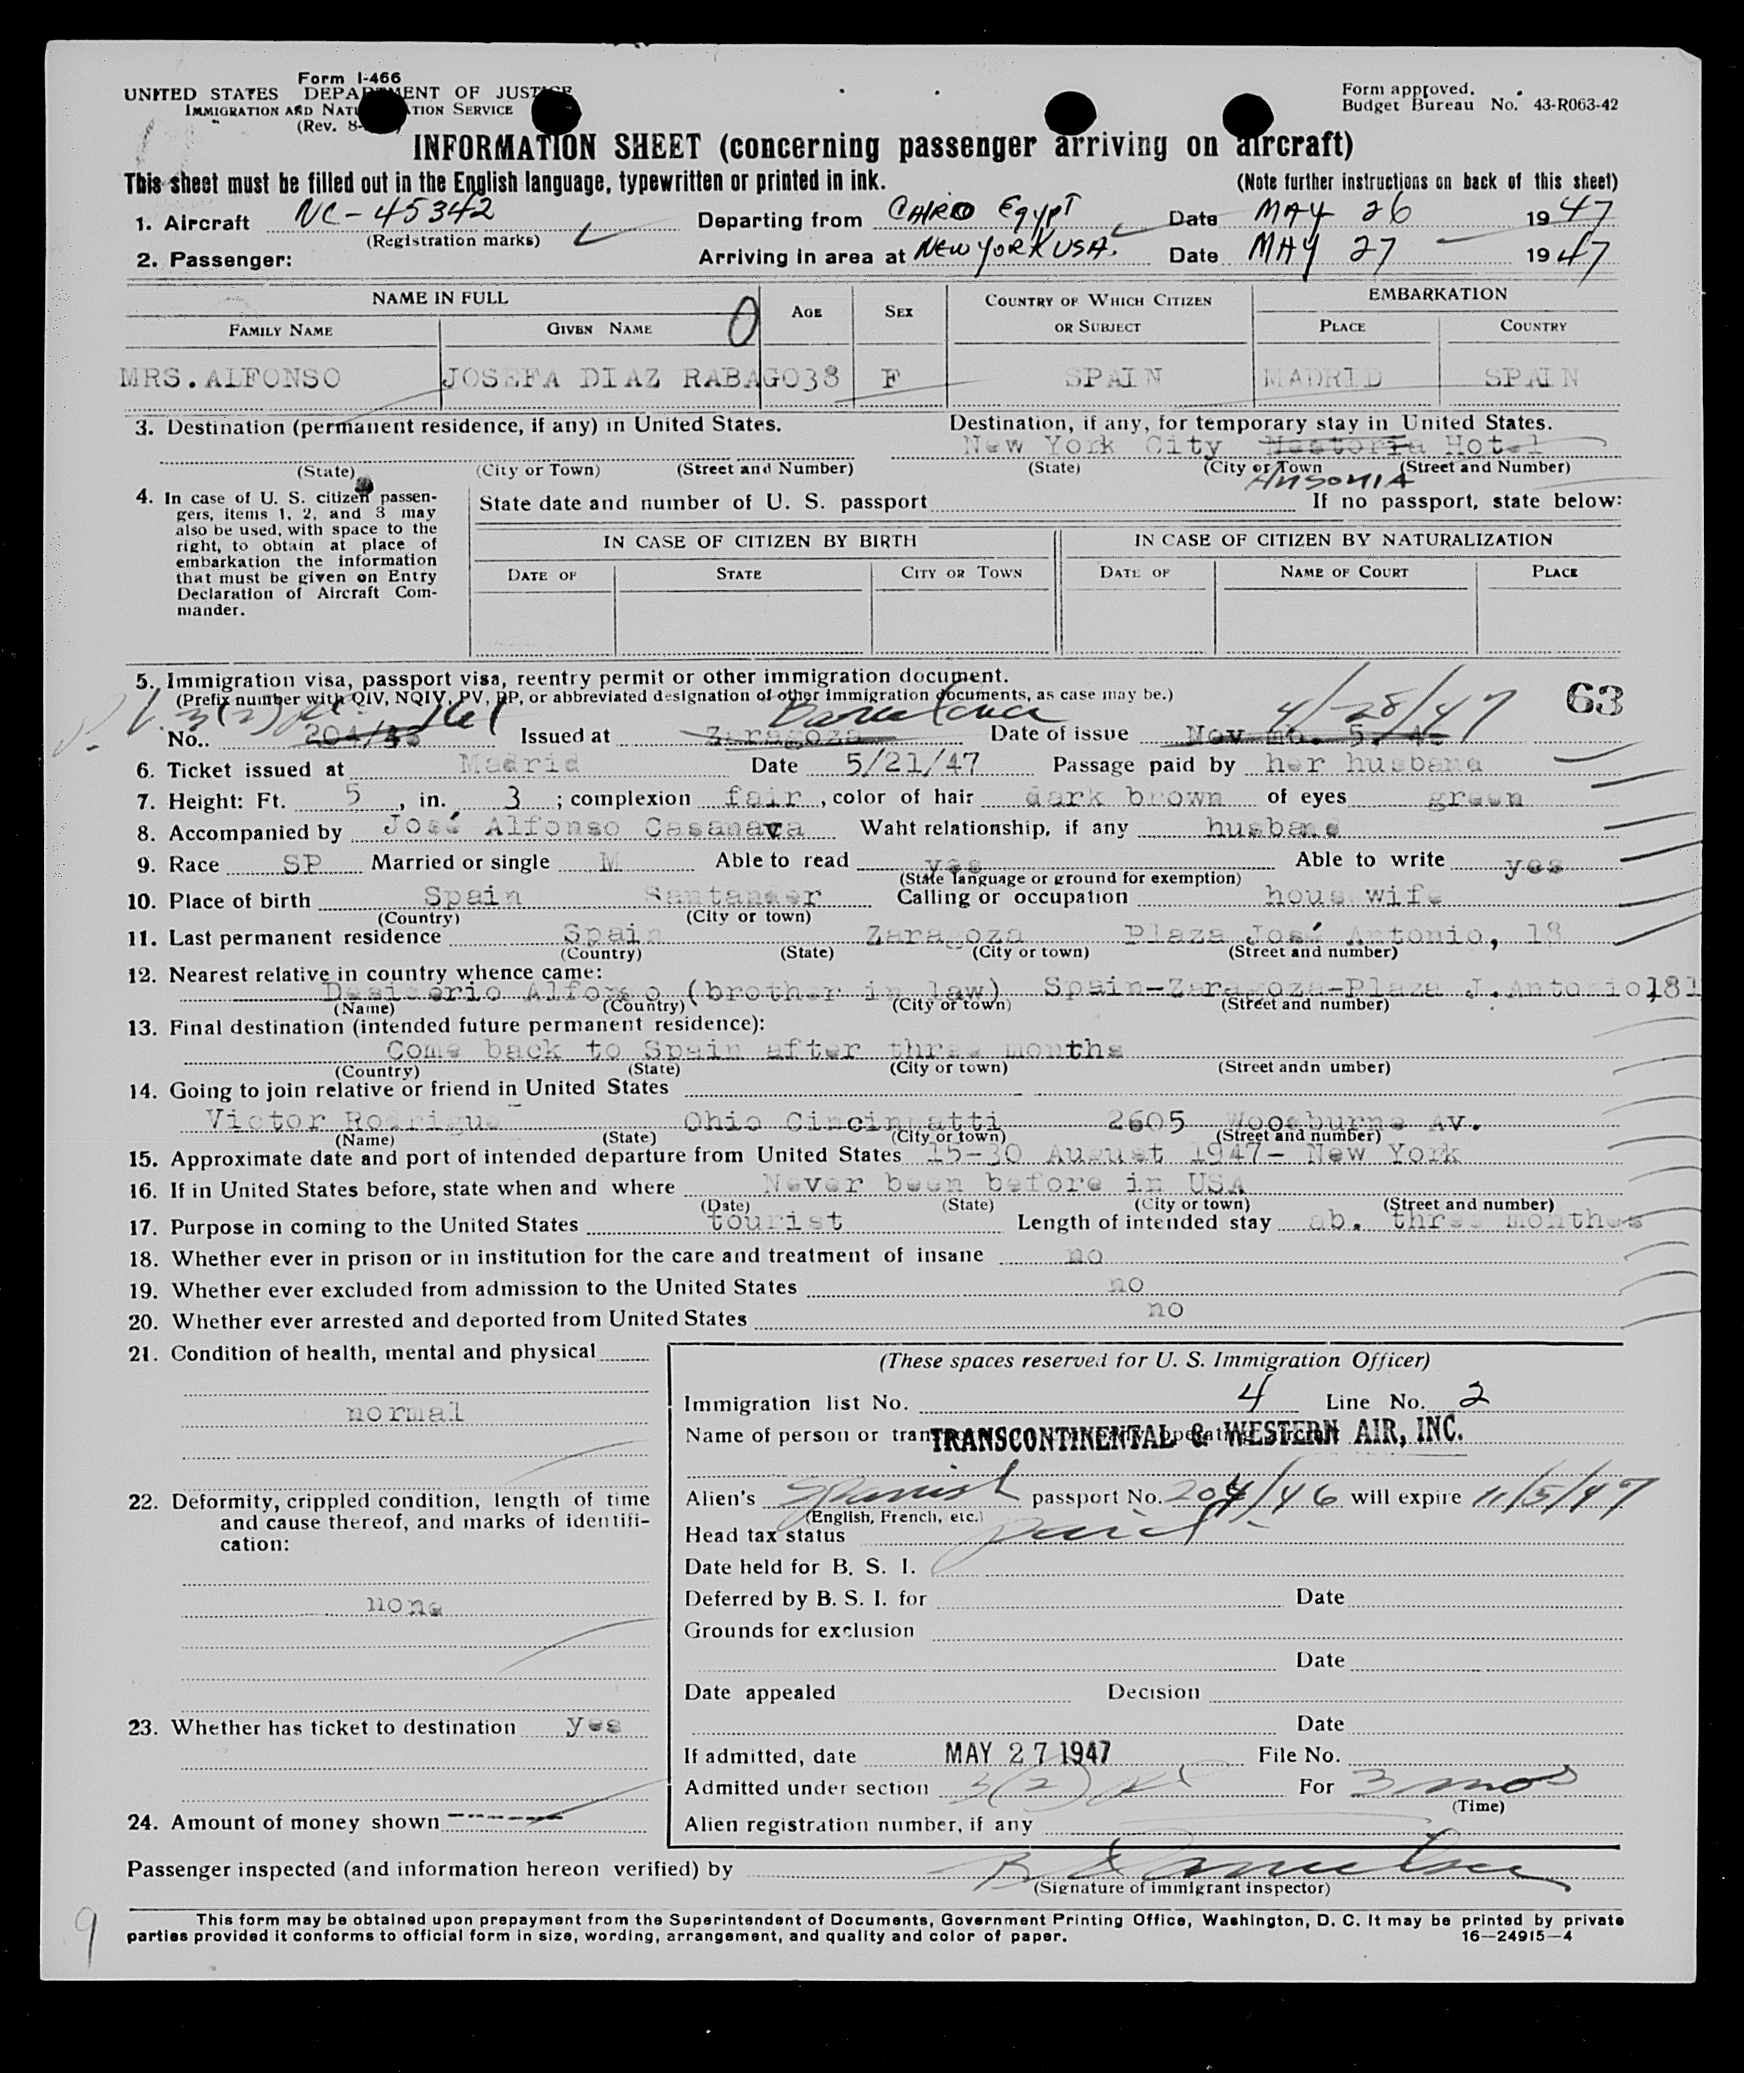 Form I-466
UNITED STATES DEPARTMENT OF JUSTICE
IMMIGRATION AND NATURALIZATION SERVICE
(Rev. 8-
Form approved.
Budget Bureau No. 43-R063-42
INFORMATION SHEET (concerning passenger arriving on aircraft)
This sheet must be filled out in the English language, typewritten or printed in ink. (Note further instructions on back of this sheet)
1. Aircraft NC-45342 Departing from CAIRO EGYPT Date MAY 26 1947
(Registration marks)
2. Passenger: Arriving in area at NEW YORK USA. Date MAY 27 1947
NAME IN FULL AGE SEX COUNTRY OF WHICH CITIZEN OR SUBJECT EMBARKATION
FAMILY NAME GIVEN NAME PLACE COUNTRY
0
MRS. ALFONSO JOSEFA DIAZ RABAGO 38 F SPAIN MADRID SPAIN
3. Destination (permanent residence, if any) in United States. Destination, if any, for temporary stay in United States.
New York City Hotel
(State) (City or Town) (Street and Number) (State) (City or Town (Street and Number)
ANSONIA
4. In case of U. S. citizen passen-
gers, items 1, 2, and 3 may
also be used, with space to the
right, to obtain at place of
embarkation the information
that must be given on Entry
Declaration of Aircraft Com-
mander.
State date and number of U. S. passport If no passport, state below:
IN CASE OF CITIZEN BY BIRTH IN CASE OF CITIZEN BY NATURALIZATION
DATE OF STATE CITY OR TOWN DATE OF NAME OF COURT PLACE
5. Immigration visa, passport visa, reentry permit or other immigration document.
(Prefix number with QIV, NQIV, PV, RP, or abbreviated designation of other immigration documents, as case may be.)
63
P.V. 3(2) 161 Barcelona 4/28/47
No.. 204/46 Issued at Zaragoza Date of issue Nov mo. 5. 46
6. Ticket issued at Madrid Date 5/21/47 Passage paid by her husband
7. Height: Ft. 5, in. 3; complexion fair, color of hair dark brown of eyes green
8. Accompanied by José Alfonso Casanava Waht relationship, if any husband
9. Race SP Married or single M Able to read yes Able to write yes
(State language or ground for exemption)
10. Place of birth Spain Santander Calling or occupation housewife
(Country) (City or town)
11. Last permanent residence Spain Zaragoza Plaza José Antonio, 18
(Country) (State) (City or town) (Street and number)
12. Nearest relative in country whence came:
Desiderio Alfonso (brother in law) Spain-Zaragoza-Plaza J.Antonio,18
(Name) (Country) (City or town) (Street and number)
13. Final destination (intended future permanent residence):
Come back to Spain after three months
(Country) (State) (City or town) (Street andn umber)
14. Going to join relative or friend in United States
Victor Rodrigue Ohio Cincinnatti 2605 Woodburne Av.
(Name) (State) (City or town) (Street and number)
15. Approximate date and port of intended departure from United States 15-30 August 1947- New York
16. If in United States before, state when and where Never been before in USA
(Date) (State) (City or town) (Street and number)
17. Purpose in coming to the United States tourist Length of intended stay ab. three months
18. Whether ever in prison or in institution for the care and treatment of insane no
19. Whether ever excluded from admission to the United States no
20. Whether ever arrested and deported from United States no
21. Condition of health, mental and physical
normal
22. Deformity, crippled condition, length of time
and cause thereof, and marks of identifi-
cation:
none
23. Whether has ticket to destination yes
24. Amount of money shown ------
(These spaces reserved for U. S. Immigration Officer)
Immigration list No. 4 Line No. 2
Name of person or TRANSCONTINENTAL & WESTERN AIR, INC.
Alien's Spanish passport No. 204/46 will expire 11/5/47
(English, French, etc.)
Head tax status Paid
Date held for B. S. I.
Deferred by B. S. I. for Date
Grounds for exclusion
Date
Date appealed Decision
Date
If admitted, date MAY 27 1947 File No.
Admitted under section 3(2) For 3 mos
(Time)
Alien registration number, if any
Passenger inspected (and information hereon verified) by
(Signature of immigrant inspector)
This form may be obtained upon prepayment from the Superintendent of Documents, Government Printing Office, Washington, D. C. It may be printed by private
parties provided it conforms to official form in size, wording, arrangement, and quality and color of paper. 16—24915—4
9